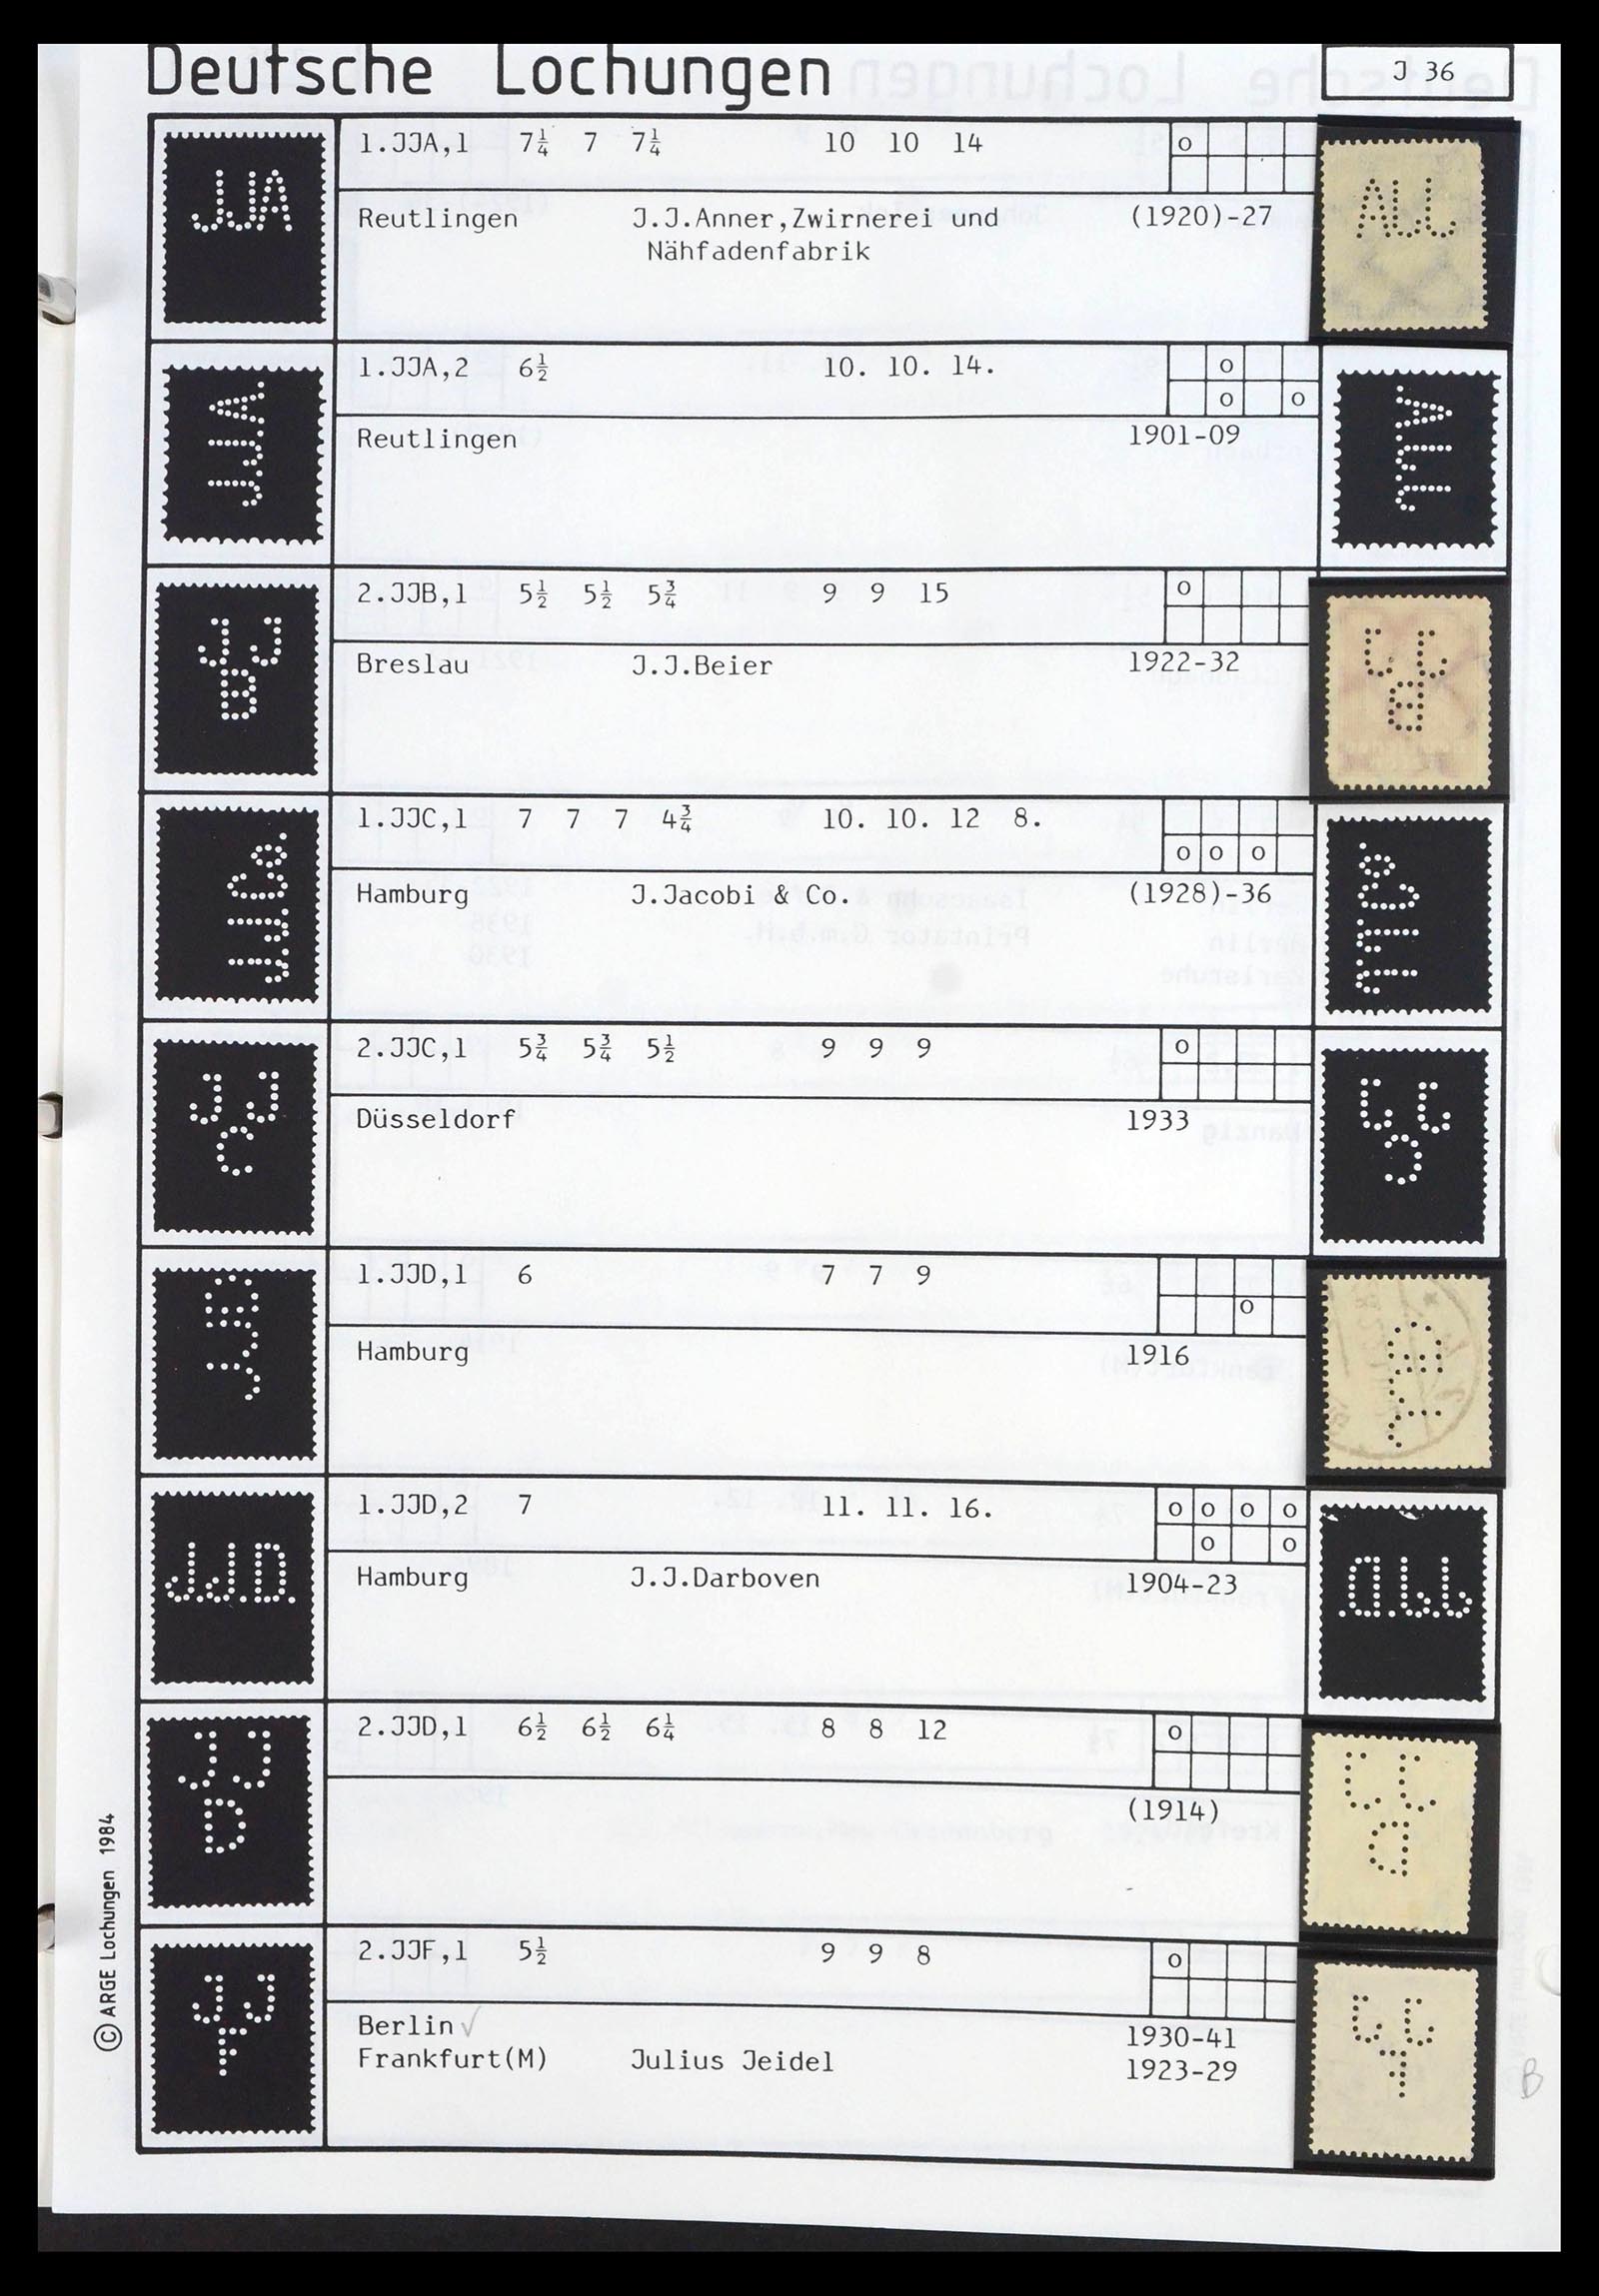 Deutsche Lochungen
J 36
JJA
1.JJA,1 7¼ 7 7¼ 10 10 14
Reutlingen J.J.Anner,Zwirnerei und (1920)-27
Nähfadenfabrik
JJA.
1.JJA,2 6½ 10. 10. 14.
Reutlingen 1901-09
JJ
B
2.JJB,1 5½ 5½ 5¾ 9 9 15
Breslau J.J.Beier 1922-32
J.J.Co.
1.JJC,1 7 7 7 4¾ 10. 10. 12 8.
Hamburg J.Jacobi & Co. (1928)-36
JJ
C
2.JJC,1 5¾ 5¾ 5½ 9 9 9
Düsseldorf 1933
JJD
1.JJD,1 6 7 7 9
Hamburg 1916
J.J.D.
1.JJD,2 7 11. 11. 16.
Hamburg J.J.Darboven 1904-23
JJ
D
2.JJD,1 6½ 6½ 6¼ 8 8 12
(1914)
JJ
F
2.JJF,1 5½ 9 9 8
Berlin ✓ 1930-41
Frankfurt(M) Julius Jeidel 1923-29
B
© ARGE Lochungen 1984